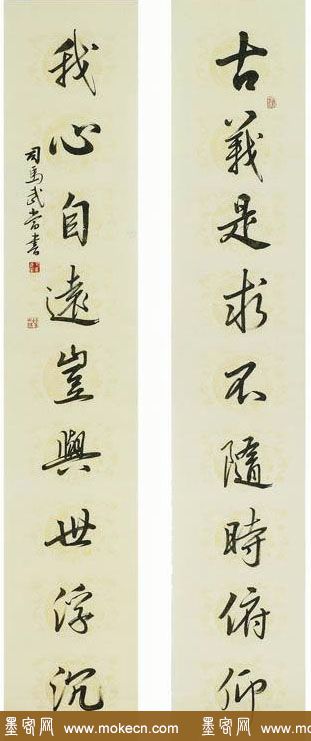 古義是求不隨時俯仰
我心自遠豈與世浮沉
司馬武當書
墨客网 www.mokecn.com 墨客网 www.mokecn.com